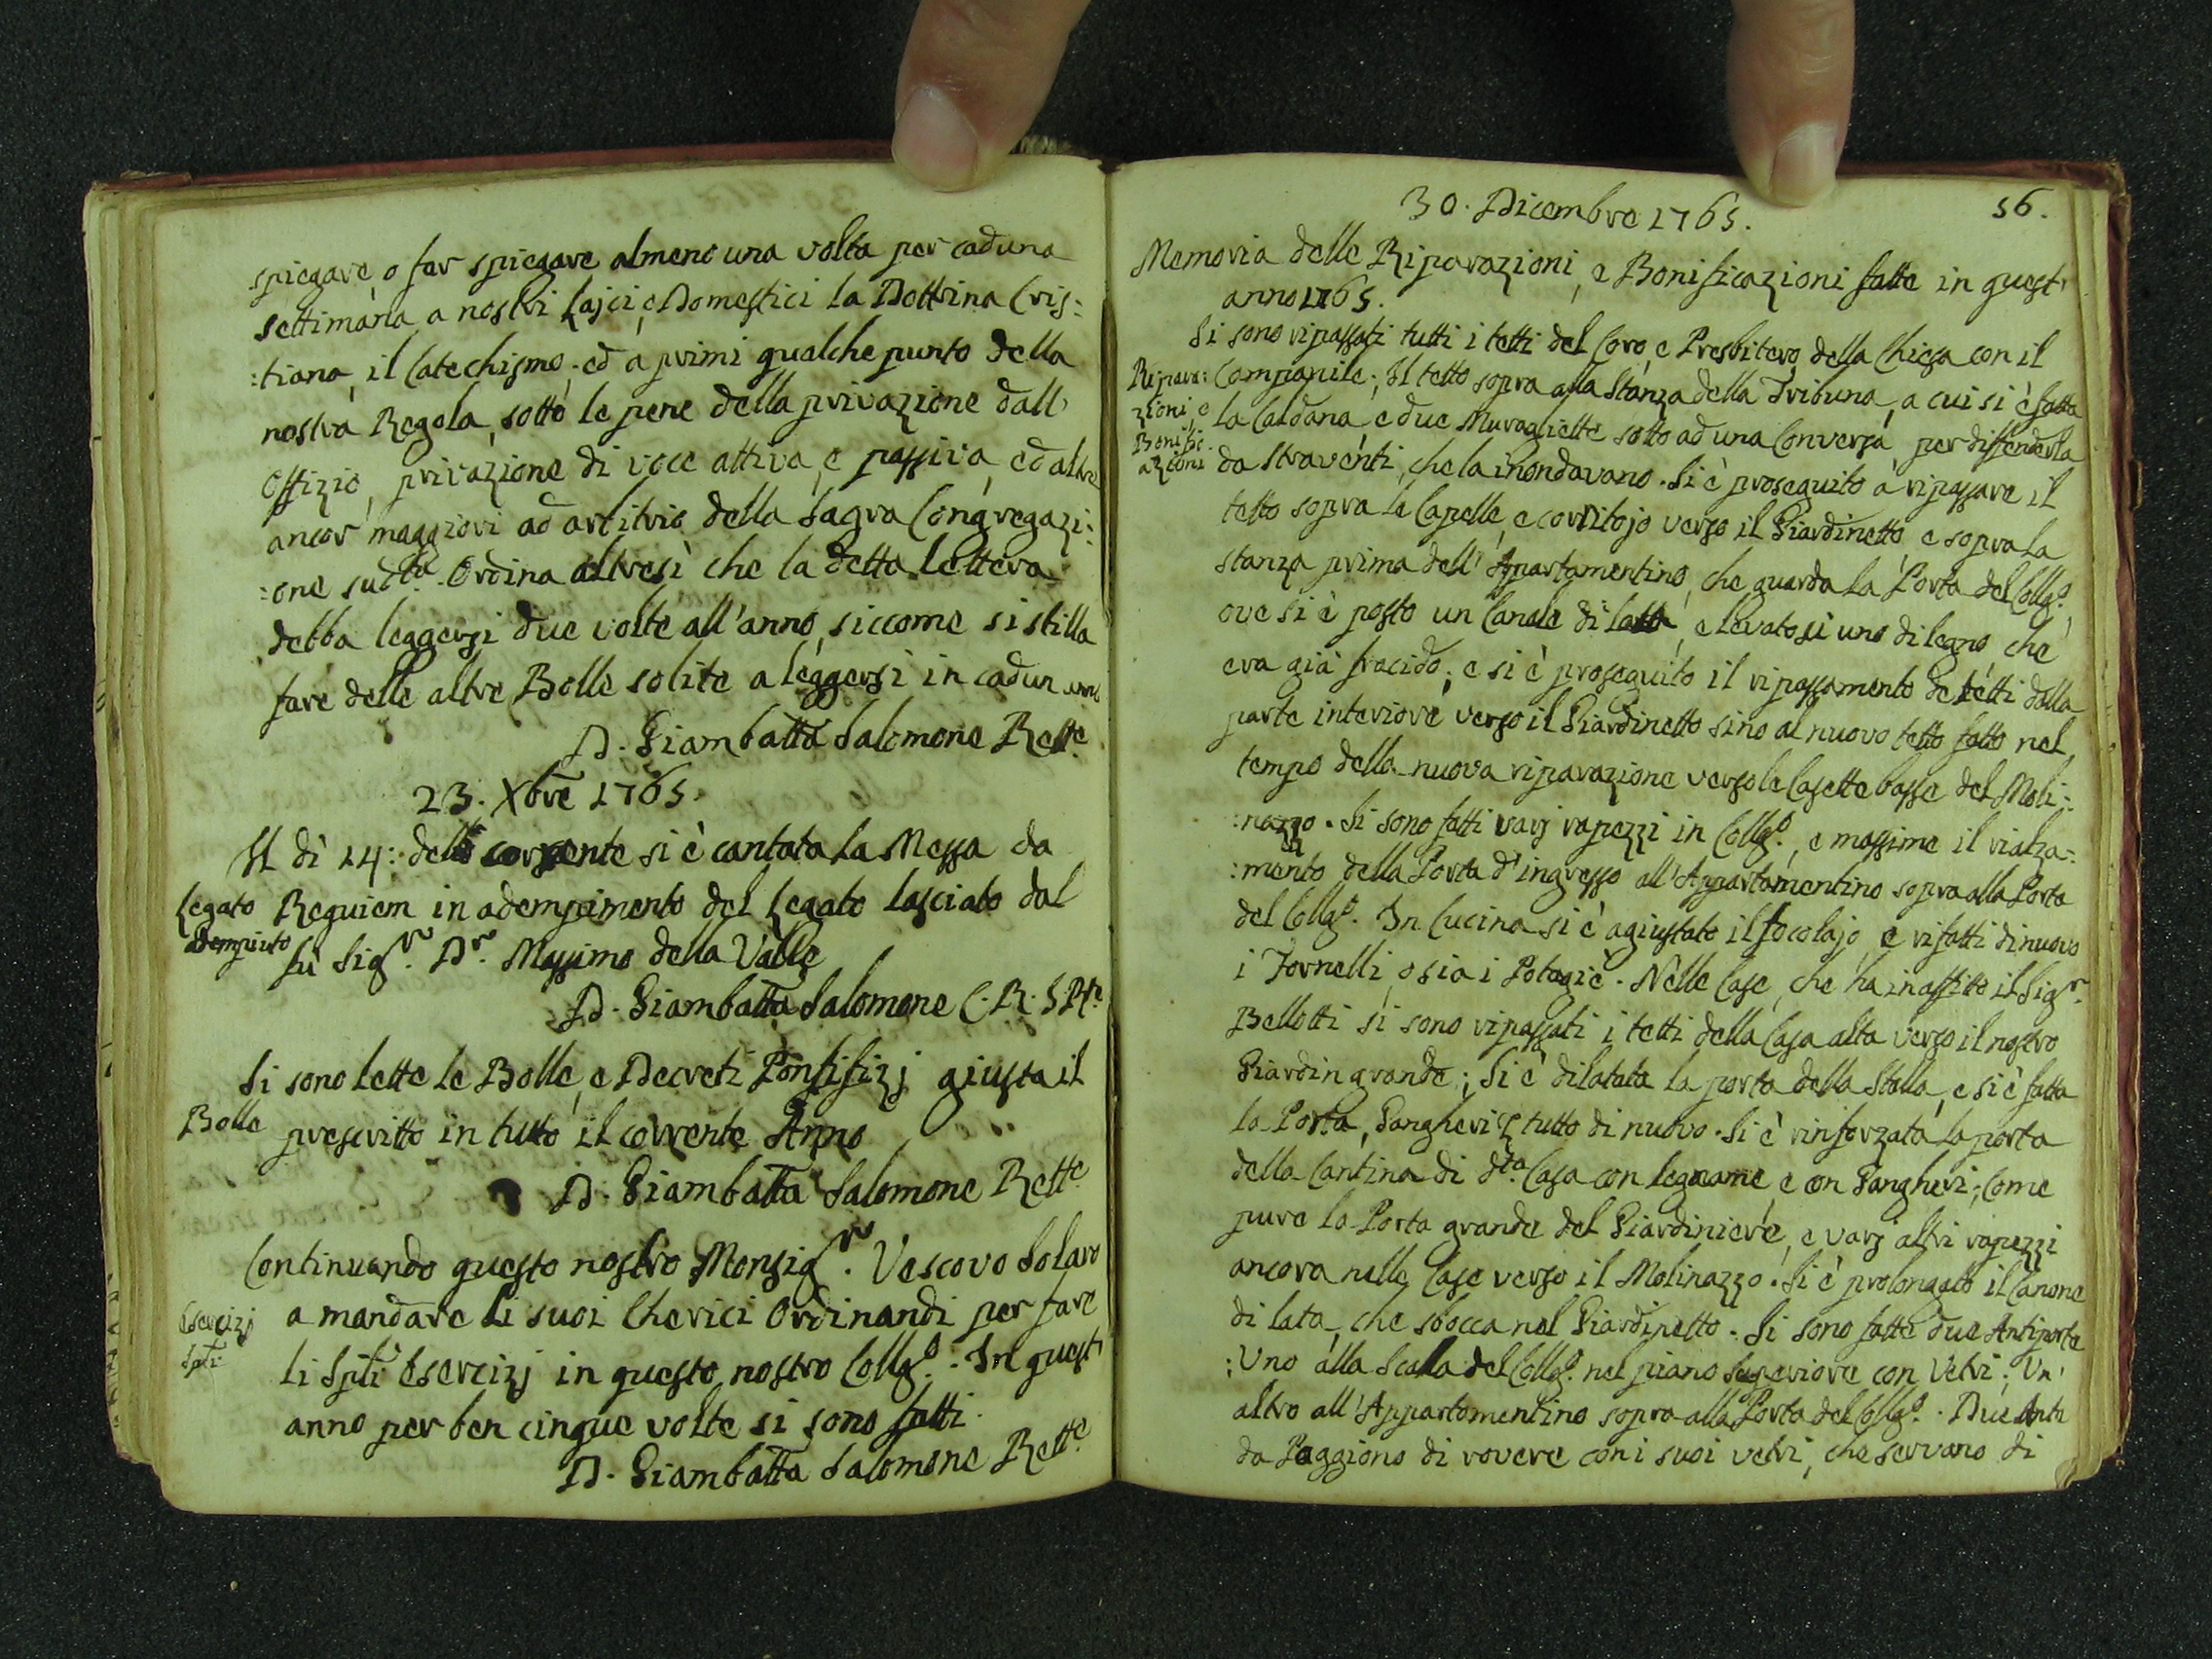 spiegare, o far spiegare almeno una volta per caduna
settimana a nostri Lajci, e Domestici la Dottrina Cris:
:tiana, il Catechismo; ed a primi qualche punto della
nostra Regola, sotto le pene della privazione dall'
Offizio, privazione di voce attiva, e passiva, ed altre
ancor maggiori ad arbitrio della Sagra Congregazi:
:one sudta. Ordina altresì che la detta lettera
debba leggersi due volte all'anno, siccome si stilla
fare delle altre Bolle solite a leggersi in cadun anno
D. Giambatta Salomone Rette.
23. Xbre 1765.
Il dì 14: dello corrente si è cantata la Messa da
Legato Requiem in adempimento del Legato lasciato dal
adempiuto fù Sigr. Dr. Massimo della Valle
D. Giambatta Salomone C. R. S. Rre.
Si sono lette le Bolle, e Decreti Pontifizj giusta il
Bolle prescritto in tutto il corrente Anno
D. Giambatta Salomone Rette.
Continuando questo nostro Monsigr. Vescovo Solaro
Esercizj a mandare li suoi Cherici Ordinandi per fare
Spli: li Spli Esercizj in questo nostro Collgo. In quest'
anno per ben cinque volte si sono fatti.
D. Giambatta Salomone Rette.
30. Dicembre 1765. 56.
Memoria delle Riparazioni, e Bonificazioni fatte in quest'
anno 1765.
Si sono ripassati tutti i tetti del Coro, e Presbitero della Chiesa con il
Ripara: Campanile; Il tetto sopra alla Stanza della Tribuna, a cui si è fatta
zioni e la Caldana, e due Muragliette sotto ad una Conversa, per diffenderla
Bonifi: azioni da Straventi, che la inondavano. Si è proseguito a ripassare il
tetto sopra le Capelle, e corritojo verso il Giardinetto, e sopra la
stanza prima dell'Apartamentino, che guarda la Porta del Collgo,
ove si è posto un Canale di latta, e levatosi uno di legno che
era già fracido; e si è proseguito il ripassamento de tetti dalla
parte interiore verso il Giardinetto sino al nuovo tetto fatto nel
tempo della nuova riparazione verso le Casette basse del Moli:
:nazzo. Si sono fatti varj rapezzi in Collgo., e massime il rialza:
:mento della Porta d'ingresso all'Appartamentino sopra alla Porta
del Collgo. In Cucina si è agiustato il focolajo, e rifatti di nuovo
i Fornelli, o sia i Potagiè. Nelle Case, che ha in affitto il Sigr.
Bellotti si sono ripassati i tetti della Casa alta verso il nostro
Giardin grande; Si è dilatata la porta della Stalla, e si è fatta
la Porta, Gangheri, e tutto di nuovo. Si è rinforzata la porta
della Cantina di dta. Casa con legname, e con Gangheri; Come
pure la Porta grande del Giardiniere, e varj altri rapezzi
ancora nelle Case verso il Molinazzo. Si è prolongato il Canone
di lata, che sbocca nel Giardinetto. Si sono fatte due Antiporte
:Uno alla Scala del Collgo. nel piano superiore con Vetri; Un'
altro all'Appartamentino sopra alla Porta del Collgo. Due Ante
da Paggiono di rovere con i suoi vetri, che servano di